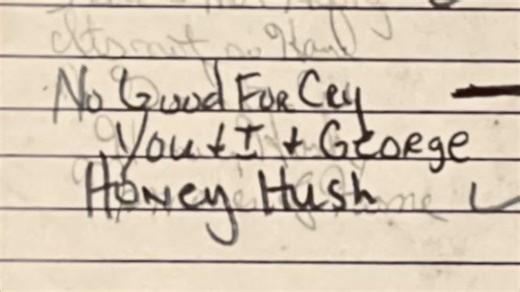 No Good For Cry
You + I + George
Honey Hush